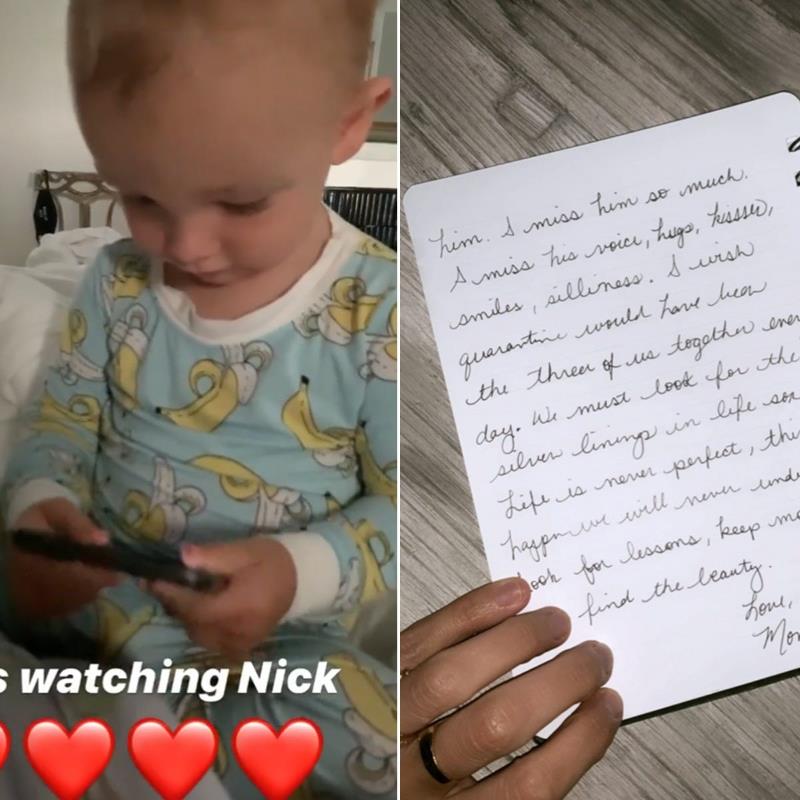 s watching Nick
him. I miss him so much.
I miss his voice, hugs, kisses,
smiles, silliness. I wish
quarantine would have been
the three of us together ever
day. We must look for the
silver linings in life son
Life is never perfect, thi
happen we will never unde
look for lessons, keep mo
find the beauty.
Love,
Mom